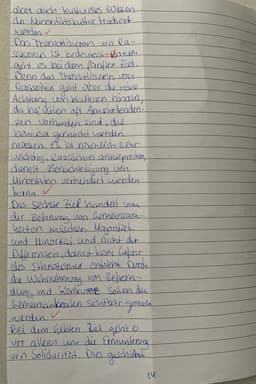 aber auch kulturelles Wissen
der Minoritätskultur tradiert
werden
Das Thematisieren von Ra-
ssismus ist bedeutend.
geht es bei dem fünften Ziel.
Denn das Thematisieren von
Rassismus geht über die reine
Achtung von Kulturen hinaus,
da bei vielen oft
zen vorhanden sind, die
bewusst gemacht werden
müssen. Es ist nämlich sehr
wichtig, Rassismus anzusprechen,
damit Benachteiligung von
Minoritäten verhindert werden
kann.
Das sechste Ziel handelt von
der Betonung von Gemeinsam-
keiten zwischen Majorität
und Minorität und nicht der
Differenzen, damit keine Gefahr
des Ethnozentrismus entsteht. Durch
die Wahrnehmung von
und Konkurrenz sollen die
Gemeinsamkeiten sichtbar gemacht
werden
Bei dem siebten Ziel geht es
vor allem um die Ermunterung
von Solidarität. Dies geschieht
14